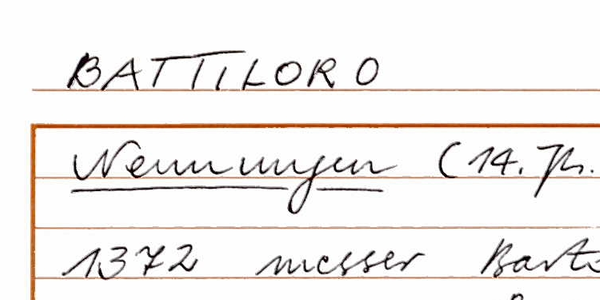 BATTILORO
Nennungen (14. Jh.
1372 messer Barto